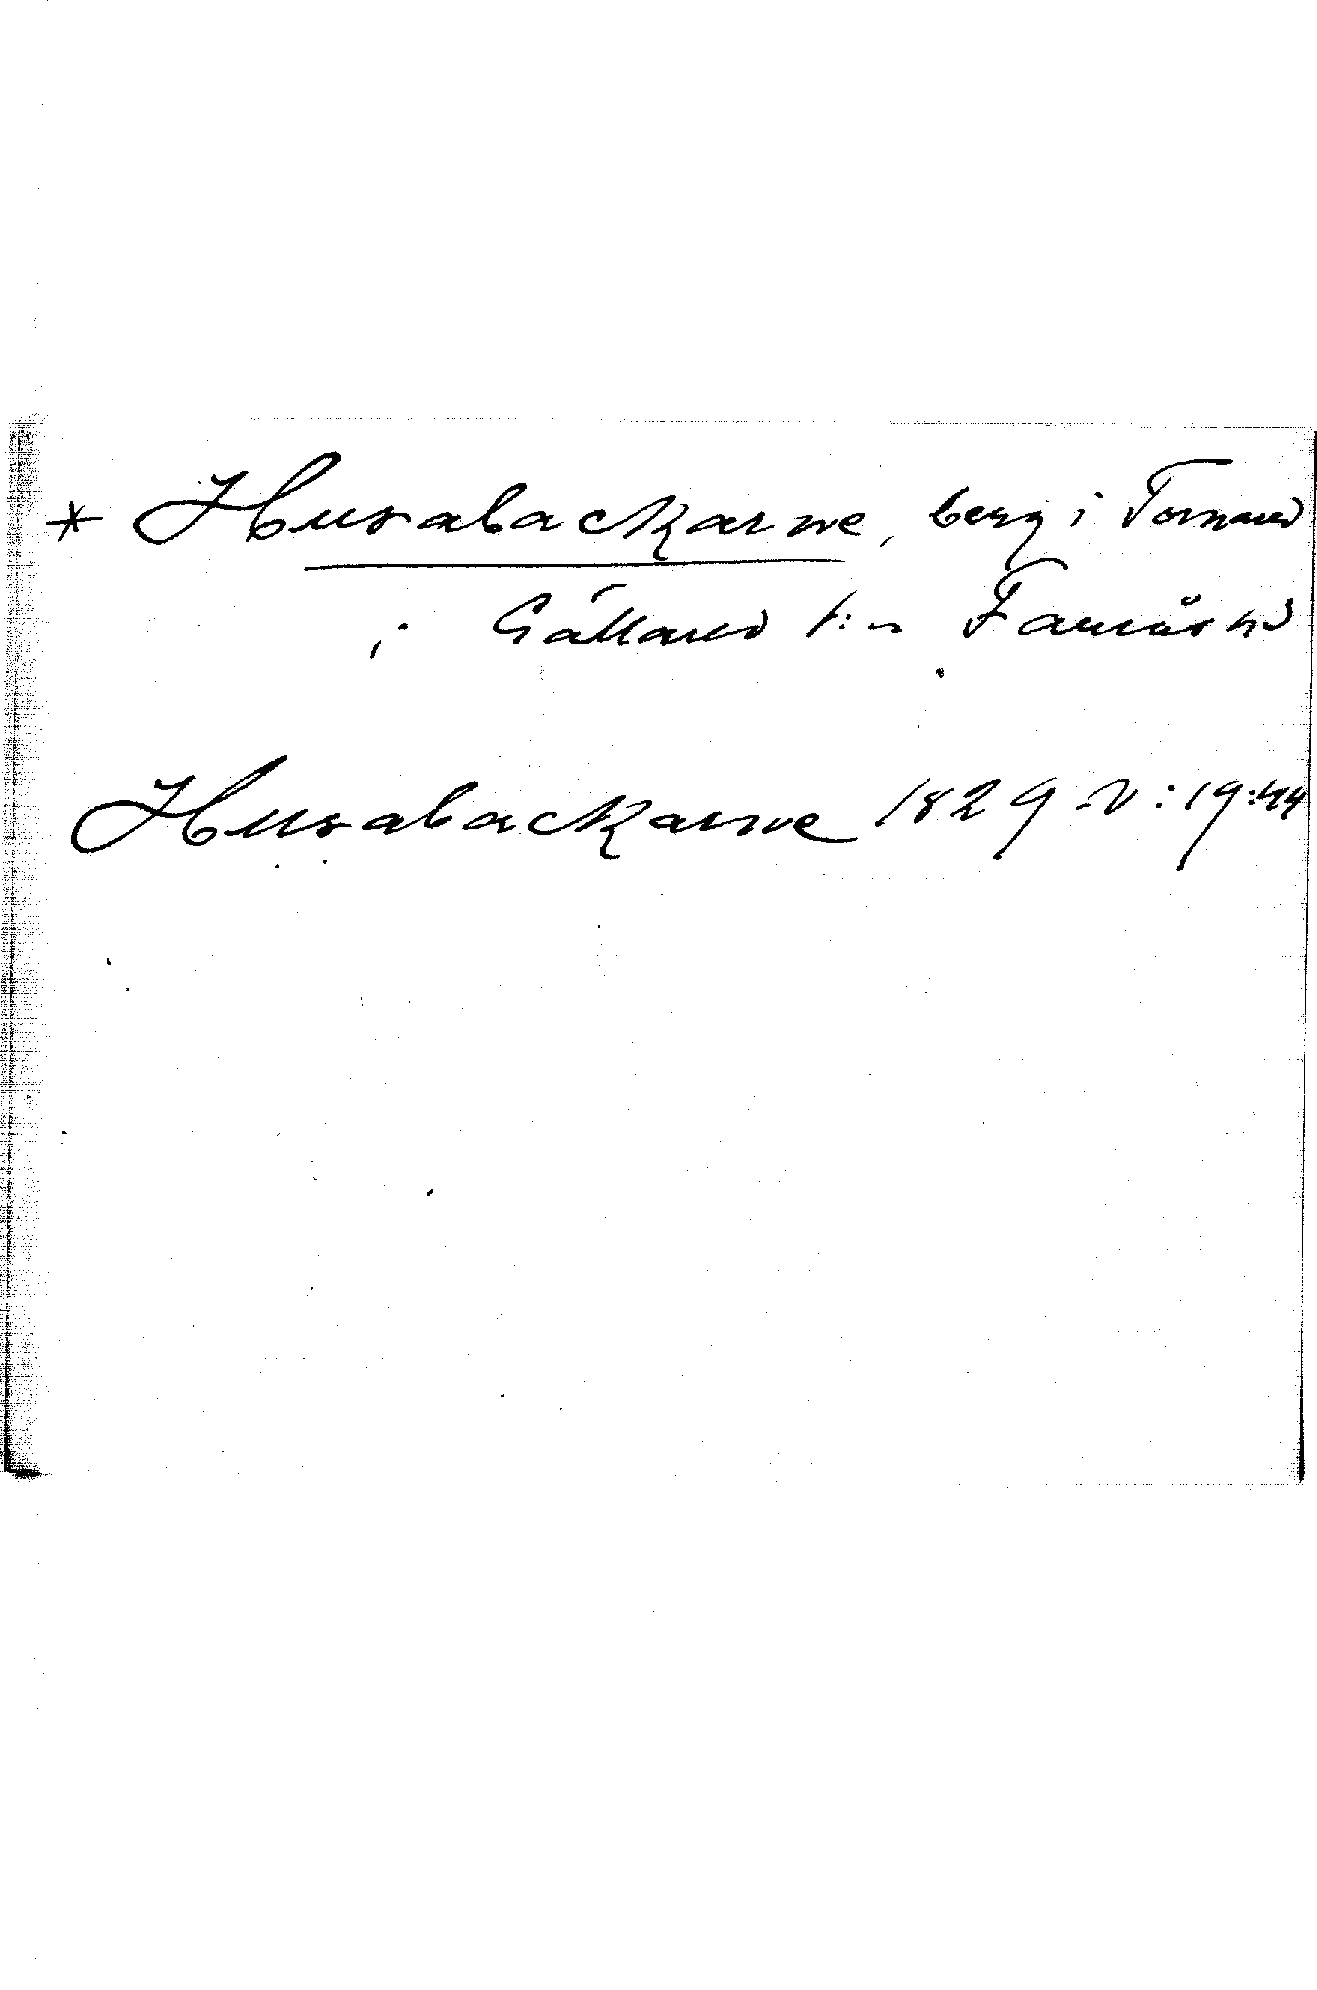 * Husabackarne, berg i Tornared
i Gällared s:n Faurås hd
Husabackarne 1829 N:19:44